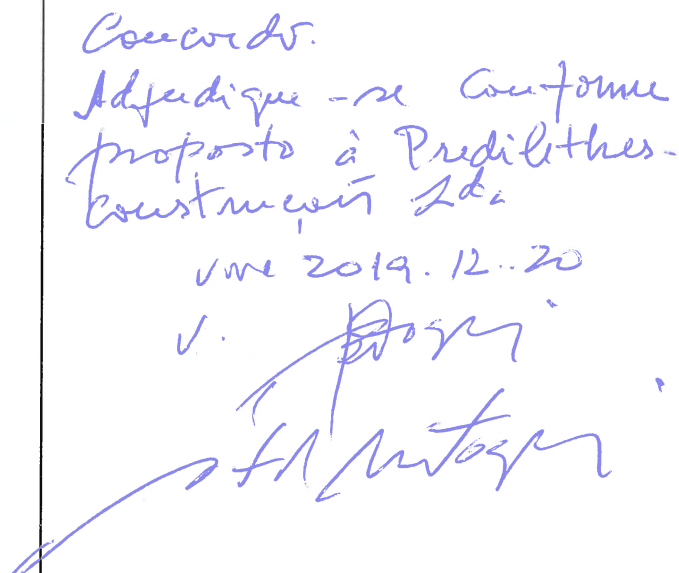 Concordo.
Adjudique-se conforme
proposto à Predilethes-
Construções Lda
2019.12.20
V.